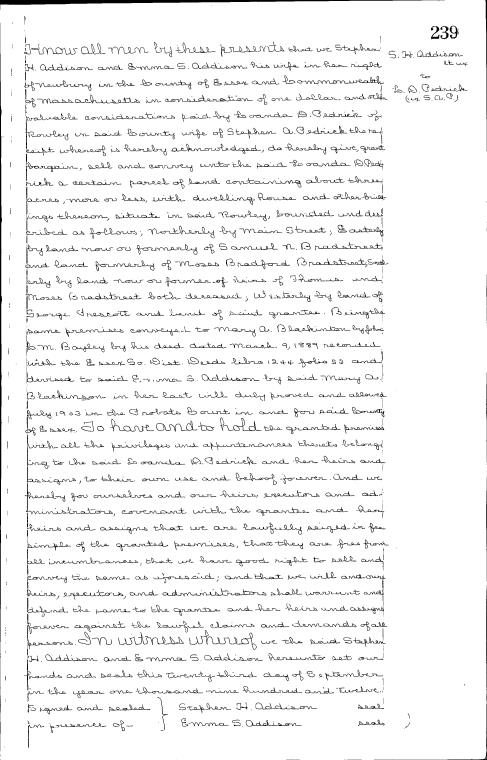 239
Know all men by these presents that we Stephen
H. Addison and Emma S. Addison his wife in her right
of Newbury in the County of Essex and Commonwealth
of Massachusetts in consideration of one dollar and other
valuable considerations paid by Loanda D. Pedrick of
Rowley in said County wife of Stephen A. Pedrick the re-
ceipt whereof is hereby acknowledged, do hereby give, grant
bargain, sell and convey unto the said Loanda D. Ped-
rick a certain parcel of land containing about three
acres, more or less, with dwelling house and other build
ings thereon, situate in said Rowley, bounded and des
cribed as follows; Northerly by Main Street; Easterly
by land now or formerly of Samuel N. Bradstreet
and land formerly of Moses Bradford Bradstreet, South
erly by land now or former of heirs of Thomas and
Moses Bradstreet both deceased; Westerly by land of
George Prescott and land of said grantee. Being the
same premises conveyed to Mary A. Blackinton by
C. M. Bayley by his deed dated March 9, 1889 recorded
with the Essex So. Dist. Deeds libro 1244 folio 53 and
devised to said Emma S. Addison by said Mary A.
Blackinson in her last will duly proved and allowed
July 1903 in the Probate Court in and for said County
of Essex. To have and to hold the granted premises
with all the privileges and appurtenances thereto belong
ing to the said Loanda D. Pedrick and her heirs and
assigns, to their own use and behoof forever. And we
hereby for ourselves and our heirs, executors and ad-
ministrators, covenant with the grantee and her
heirs and assigns that we are lawfully seized in fee
simple of the granted premises, that they are free from
all incumbrances, that we have good right to sell and
convey the same as aforesaid; and that we will and our
heirs, executors, and administrators shall warrant and
defend the same to the grantee and her heirs and assigns
forever against the lawful claims and demands of all
persons. In witness whereof we the said Stephen
H. Addison and Emma S Addison hereunto set our
hands and seals this twenty third day of September
in the year one thousand nine hundred and twelve.
Signed and sealed } Stephen H. Addison seal
in presence of— } Emma S. Addison seal
S. H. Addison
et ux
to
L. D. Pedrick
(ux S. A. P.)